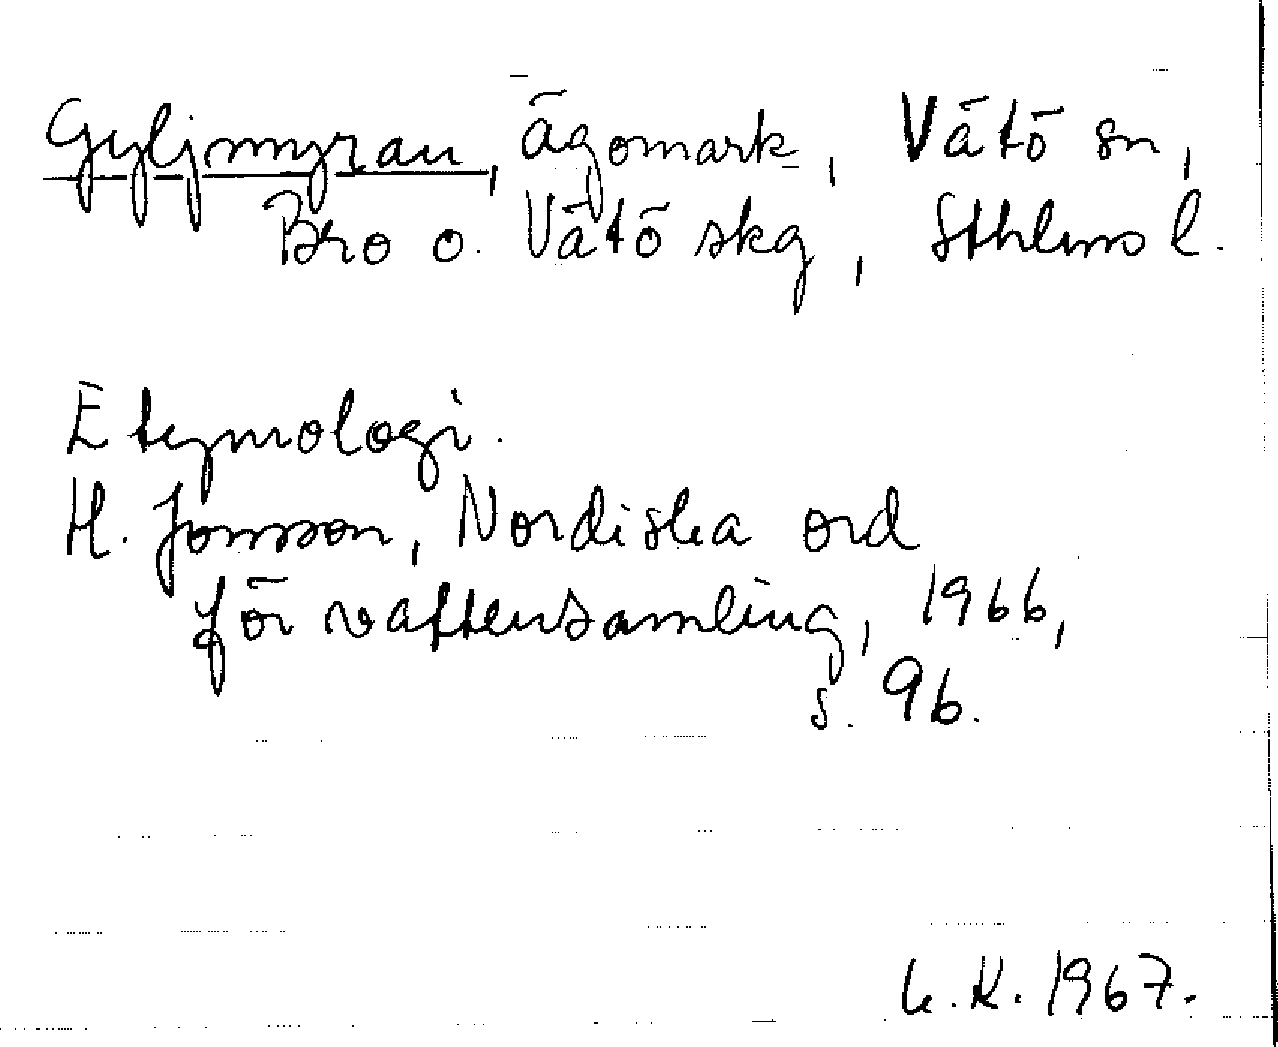 Gyljmyran, ägomark, Vätö sn,
Bro o. Vätö skg, Sthlms l.
Etymologi.
H. Jonsson, Nordiska ord
för vattensamling, 1966,
s. 96.
K. 1967.